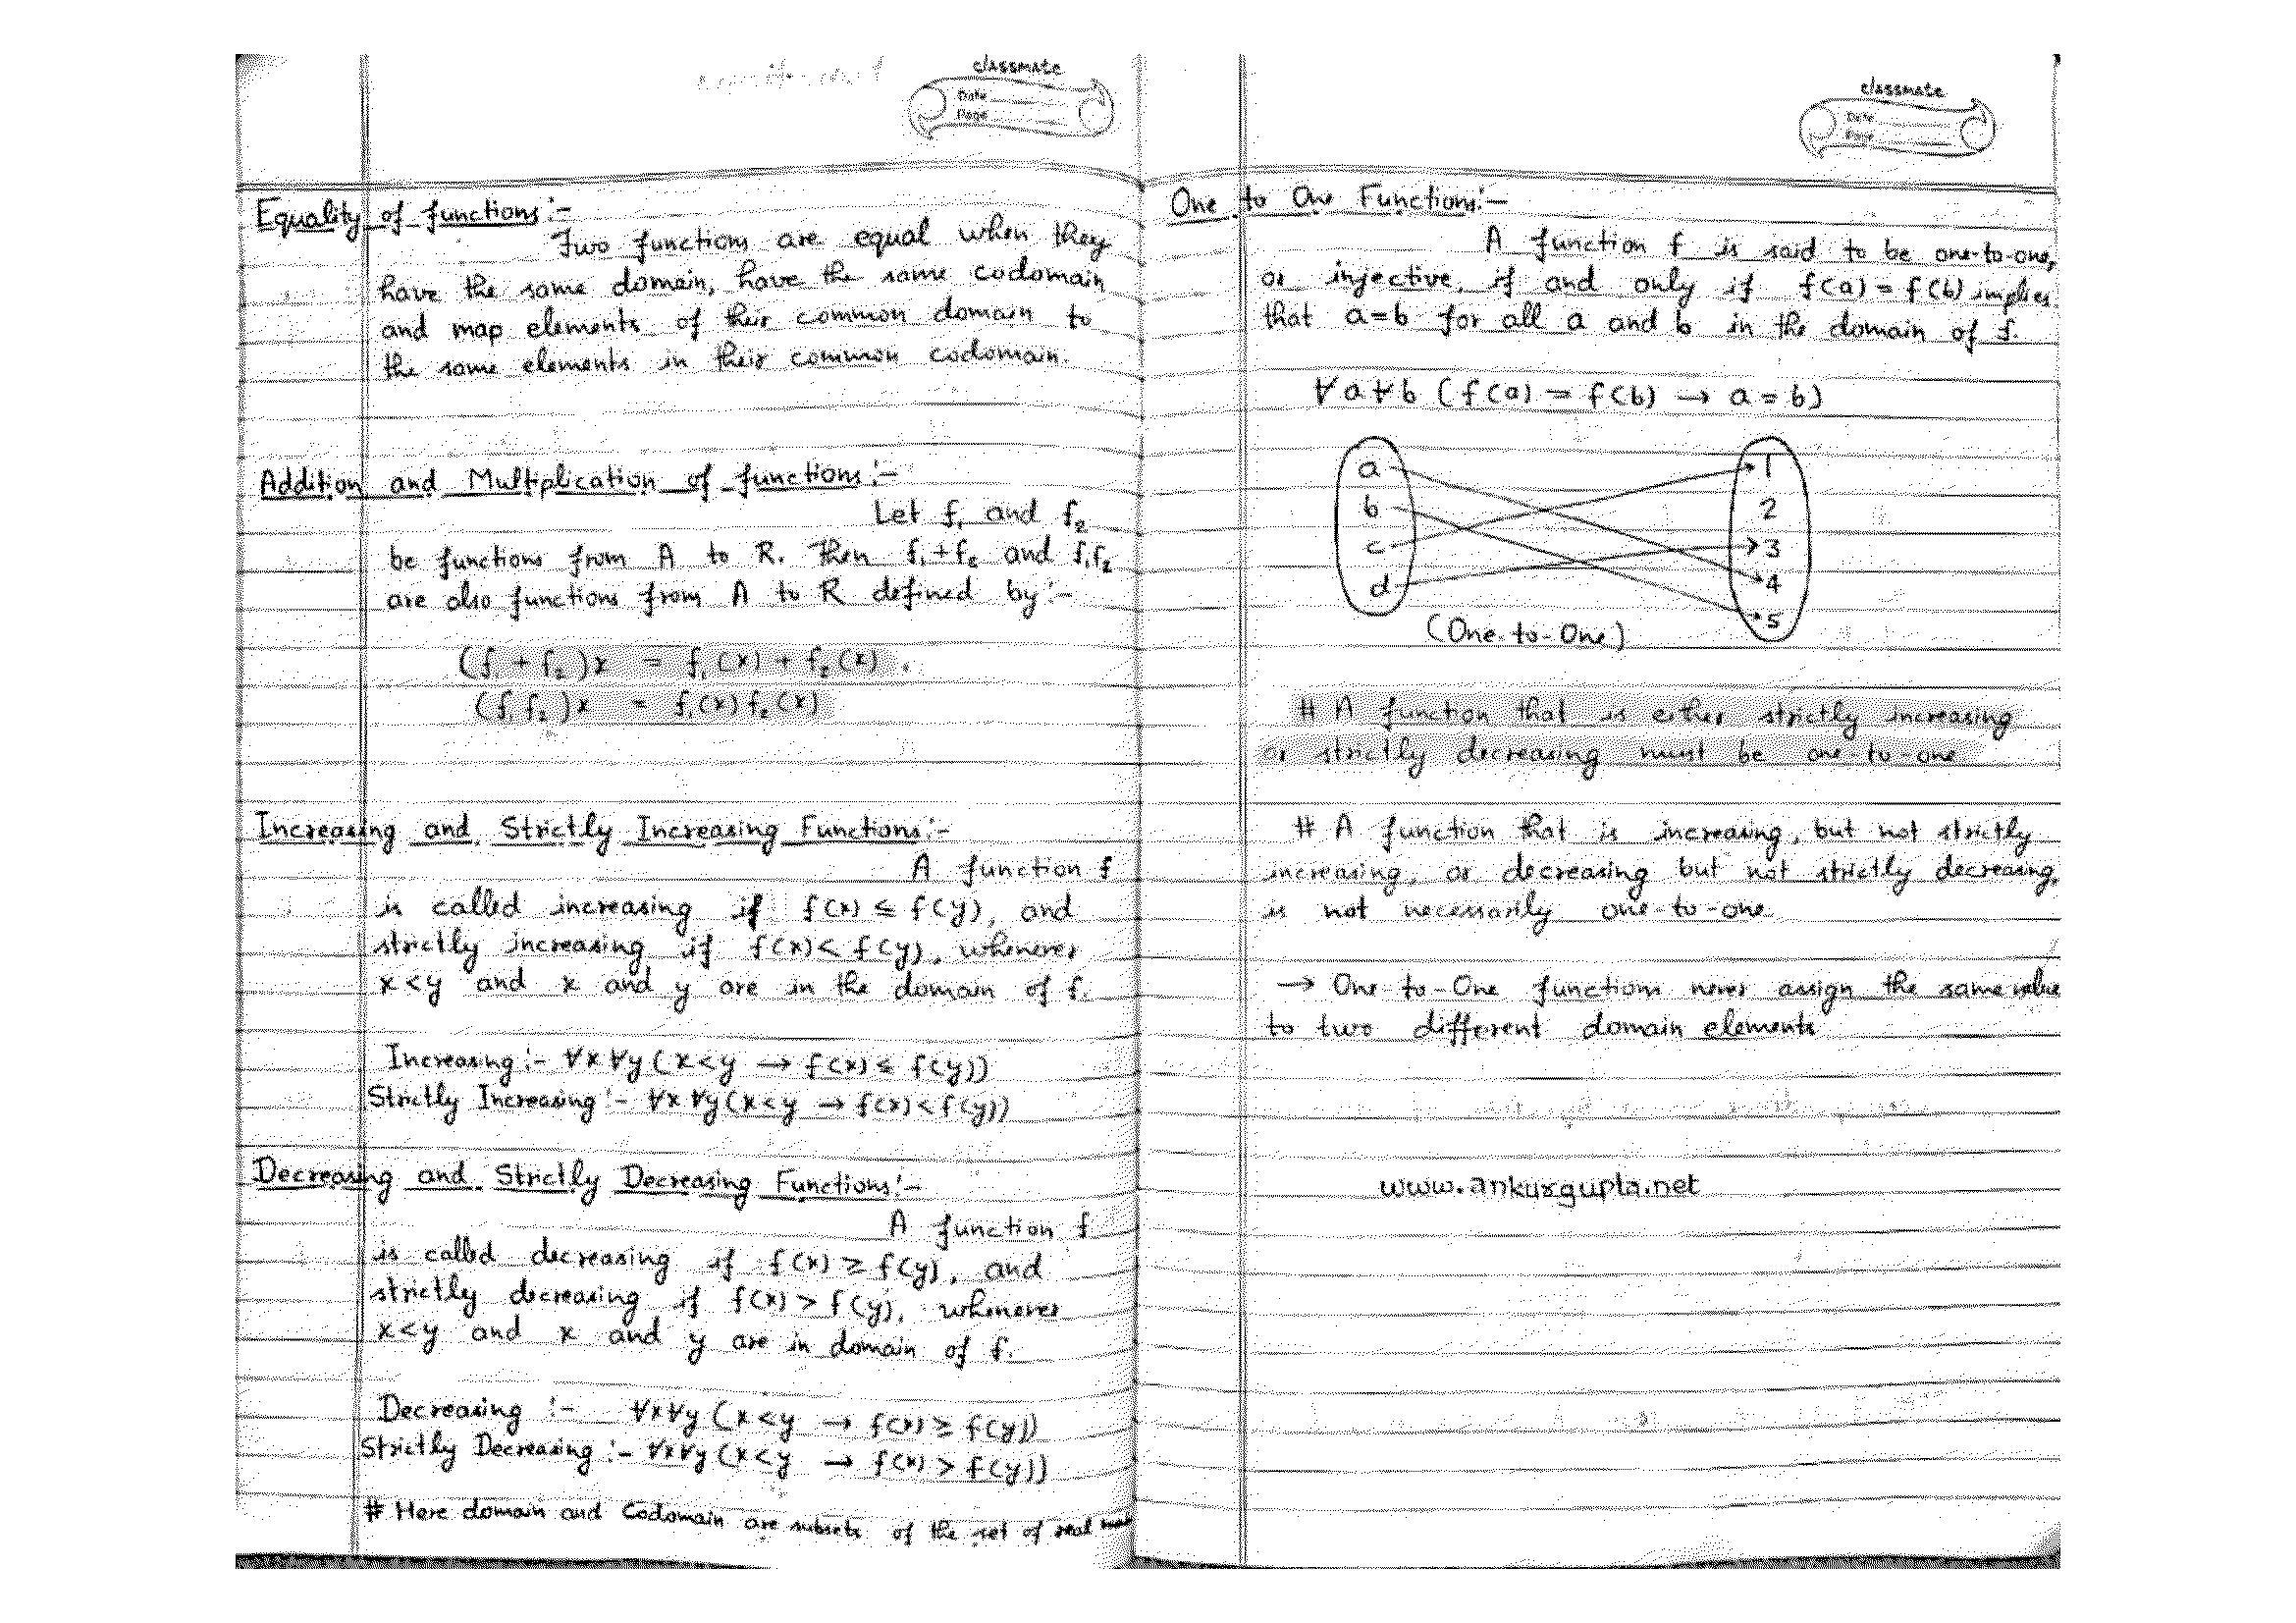 classmate
Date
Page
Equality of functions:-
Two functions are equal when they
have the same domain, have the same codomain
and map elements of their common domain to
the same elements in their common codomain.
Addition and Multiplication of functions:-
Let f₁ and f₂
be functions from A to R. Then f₁+f₂ and f₁f₂
are also functions from A to R defined by:-
(f₁ + f₂)x = f₁(x) + f₂(x).
(f₁f₂)x = f₁(x)f₂(x)
Increasing and Strictly Increasing Functions:-
A function f
is called increasing if f(x) ≤ f(y), and
strictly increasing if f(x) < f(y), whenever
x<y and x and y are in the domain of f.
Increasing:- ∀x∀y(x<y → f(x) ≤ f(y))
Strictly Increasing:- ∀x∀y(x<y → f(x)<f(y))
Decreasing and Strictly Decreasing Functions:-
A function f
is called decreasing if f(x) ≥ f(y), and
strictly decreasing if f(x) > f(y), whenever
x<y and x and y are in domain of f.
Decreasing :- ∀x∀y(x<y → f(x) ≥ f(y))
Strictly Decreasing :- ∀x∀y(x<y → f(x) > f(y))
# Here domain and Codomain are subsets of the set of real
classmate
Date
Page
One to One Functions:-
A function f is said to be one-to-one,
or injective, if and only if f(a) = f(b) implies
that a=b for all a and b in the domain of f.
∀a∀b (f(a) = f(b) → a = b)
a 1
b 2
c 3
d 4
5
(One-to-One)
# A function that is either strictly increasing
or strictly decreasing must be one-to-one
# A function that is increasing, but not strictly
increasing, or decreasing but not strictly decreasing,
is not necessarily one-to-one
→ One-to-One functions never assign the same value
to two different domain elements
www.ankurgupta.net